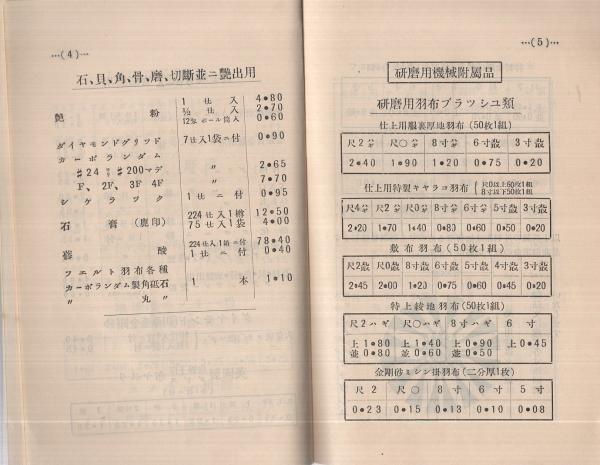 …(4)…
石、貝、角、骨、磨、切斷並ニ艶出用
艶 粉 1 仕 入 4•80
½ 仕 入 2•70
12匁 ボール筒入 0•60
ダイヤモンドグリツド 7仕入1袋ニ付 0•90
カーボランダム
♯24ヨリ♯200マデ 〃 2•65
F、2F、3F 4F 〃 7•70
シケラツク 1 仕 ニ 付 0•95
石 膏 (鹿印) 224 仕 入 1 樽 12•50
75 仕 入 1 袋 4•00
蓚 酸 224仕 入 1 箱 ニ付 78•40
1 仕 ニ 付 0•40
フエルト羽布各種
カーボランダム製角砥石 1 本 1•10
〃 丸 〃
…(5)…
研磨用機械附屬品
研磨用羽布ブラツシユ類
仕上用服裏厚地羽布(50枚1組)
尺2 尺〇 8寸 6寸 3寸
2•40 1•90 1•20 0•75 0•20
仕上用特製キヤラコ羽布 (尺0以上60枚1組 8寸以下50枚1組
尺4 尺2 尺0 8寸 6寸 5寸 3寸
2•20 1•70 1•40 0•80 0•60 0•50 0•20
敷布羽布(50枚1組)
尺2 尺0 8寸 7寸 6寸 5寸 3寸
2•45 2•00 1•20 0•75 0•60 0•45 0•20
特上綾地羽布(50枚1組)
尺2ハギ 尺〇ハギ 8寸ハギ 6 寸
上1•80 上1•40 上0•90 上0•45
並0•80 並0•60 並0•50
金剛砂ミシン掛羽布(二分厚1枚)
尺 2 尺 〇 8 寸 6 寸 5 寸
0•23 0•15 0•13 0•10 0•08